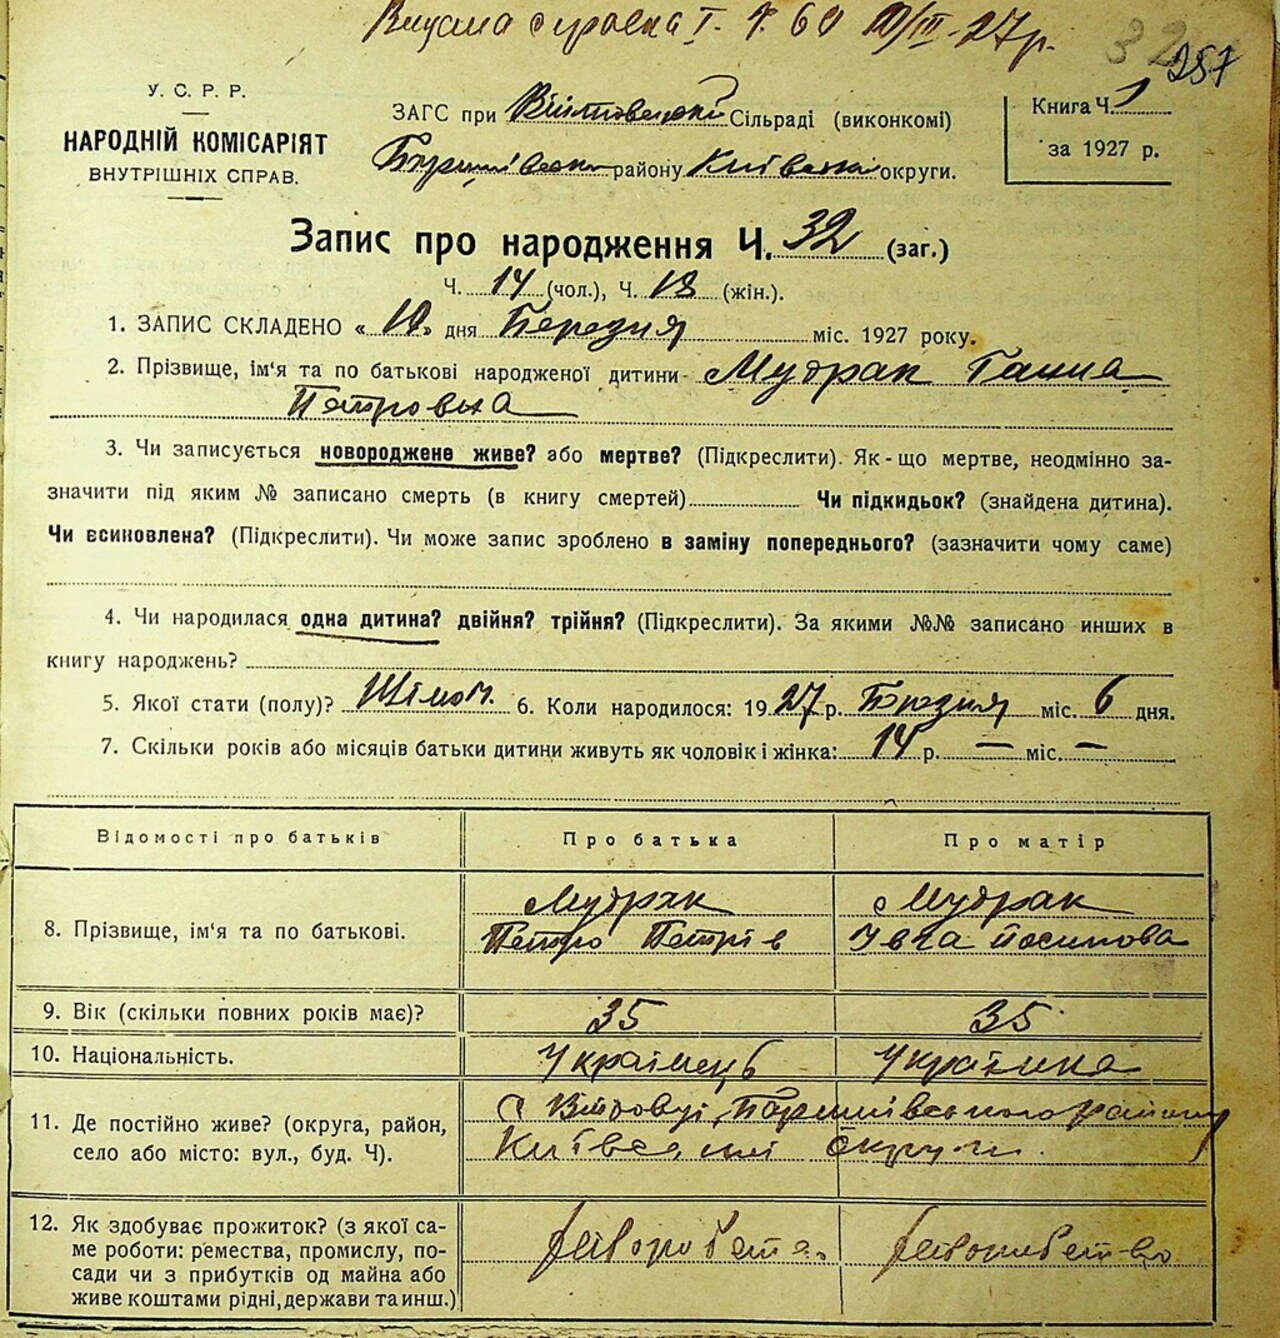 32 257
У. С. Р. Р.
НАРОДНІЙ КОМІСАРІЯТ
ВНУТРІШНІХ СПРАВ.
ЗАГС при Війтовецькій Сільраді (виконкомі)
району Київської округи.
Книга Ч. 1
за 1927 р.
Запис про народження Ч. 32 (заг.)
Ч. 14 (чол.), Ч. 18 (жін.).
1. ЗАПИС СКЛАДЕНО «10» дня Березня міс. 1927 року.
2. Прізвище, ім'я та по батькові народженої дитини Мудрак Ганна
Петровна
3. Чи записується новороджене живе? або мертве? (Підкреслити). Як-що мертве, неодмінно за-
значити під яким № записано смерть (в книгу смертей) Чи підкидьок? (знайдена дитина).
Чи всиновлена? (Підкреслити). Чи може запис зроблено в заміну попереднього? (зазначити чому саме)
4. Чи народилася одна дитина? двійня? трійня? (Підкреслити). За якими №№ записано инших в
книгу народжень?
5. Якої стати (полу)? 6. Коли народилося: 1927 р. Березня міс. 6 дня.
7. Скільки років або місяців батьки дитини живуть як чоловік і жінка: 14 р. — міс. —
Відомості про батьків Про батька Про матір
8. Прізвище, ім'я та по батькові.
Мудрак Мудрак
Петро Петрів Івга Йосипова
9. Вік (скільки повних років має)? 35 35
10. Національність. Українець Українка
11. Де постійно живе? (округа, район,
село або місто: вул., буд. Ч).
с Війтовці, району
Київської округи.
12. Як здобуває прожиток? (з якої са-
ме роботи: ремества, промислу, по-
сади чи з прибутків од майна або
живе коштами рідні, держави та инш.)